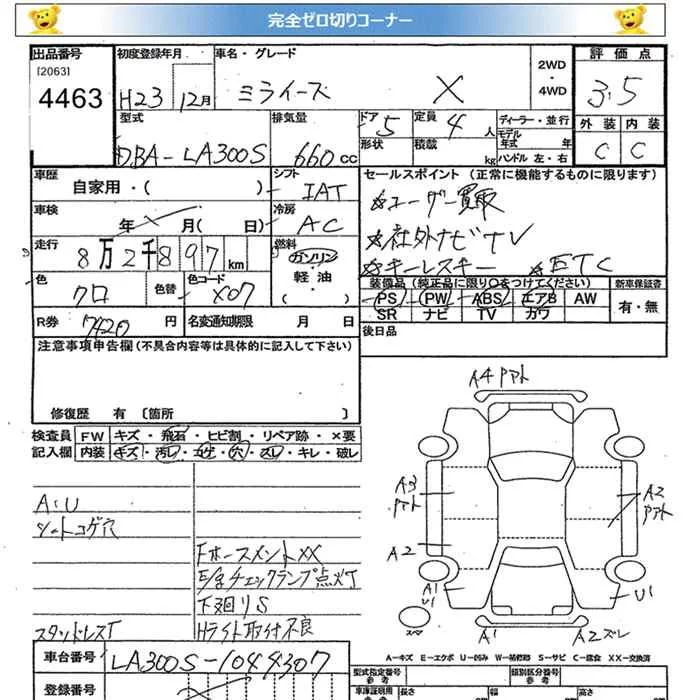 完全ゼロ切りコーナー
出品番号 初度登録年月 車名・グレード 2WD・4WD 評価点
[2063]
4463 H23 12月 ミライース X 3.5
型式 排気量 ドア 5 定員 4人 ディーラー・並行 外装 内装
モデル年式 年
DBA-LA300S 660cc 形状 積載 kg ハンドル 左・右 C C
車歴 シフト セールスポイント (正常に機能するものに限ります)
自家用・( ) IAT ☆ユーザー買取
車検 冷房
年 月( 日) AC ☆社外ナビTV
走行 燃料
8万2千897km ガソリン・軽油 ☆キーレスキー ☆ETC
色 色替 色コード 装備品 (純正品に限り○をつけてください) 新車保証書
クロ X07 PS PW ABS エアB AW 有・無
SR ナビ TV カワ
R券 7420円 名変通知期限 月 日 後日品
注意事項申告欄(不具合内容等は具体的に記入して下さい)
修復歴 有 [箇所 ]
検査員 FW キズ・飛石・ヒビ割・リペア跡・×要
記入欄 内装 キズ・汚レ・コゲ・穴・スレ・キレ・破レ
A:U
シートコゲ穴
FホースメントXX
E/gチェックランプ点灯
下廻りS
スタッドレスT Hライト取付不良
A4 アト
A3 アト
A2 アト
A2
A1 U1
U1
スペア
A1
A2 ズレ
A-キズ E-エクボ U-凹み W-補修跡 S-サビ C-腐食 XX-交換済
車台番号 LA300S-1044307
登録番号
型式指定番号 参考 類別区分番号 参考
車庫証明用 参考 長さ 幅 高さ